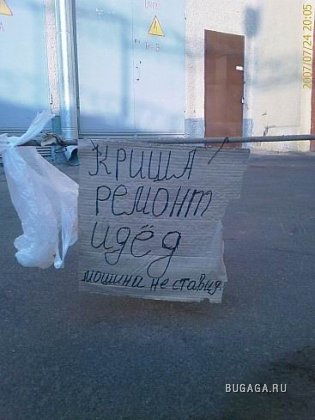 2007/07/24 20:05
КРИША
РЕМОНТ
ИДЁД
МОШИНА НЕ СТАВИД
BUGAGA.RU